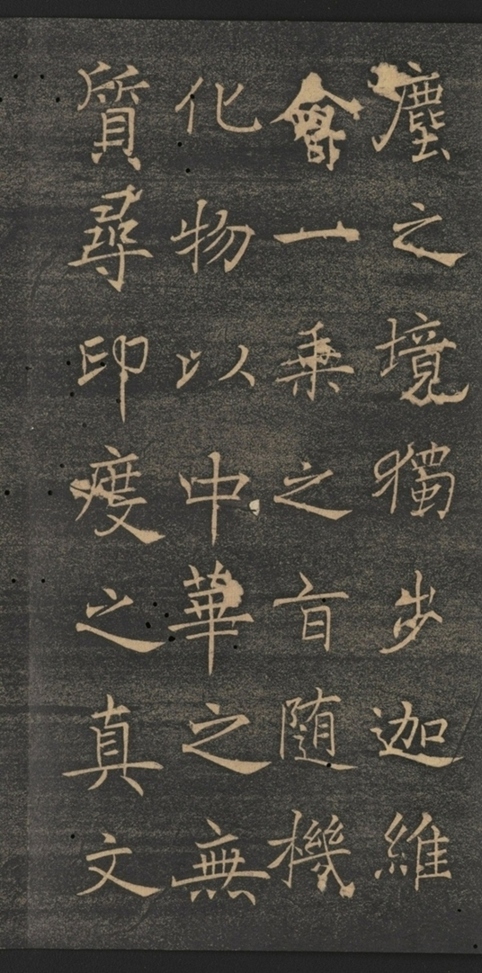 塵之境獨步迦維
會一乗之旨隨機
化物以中華之無
質尋印度之真文